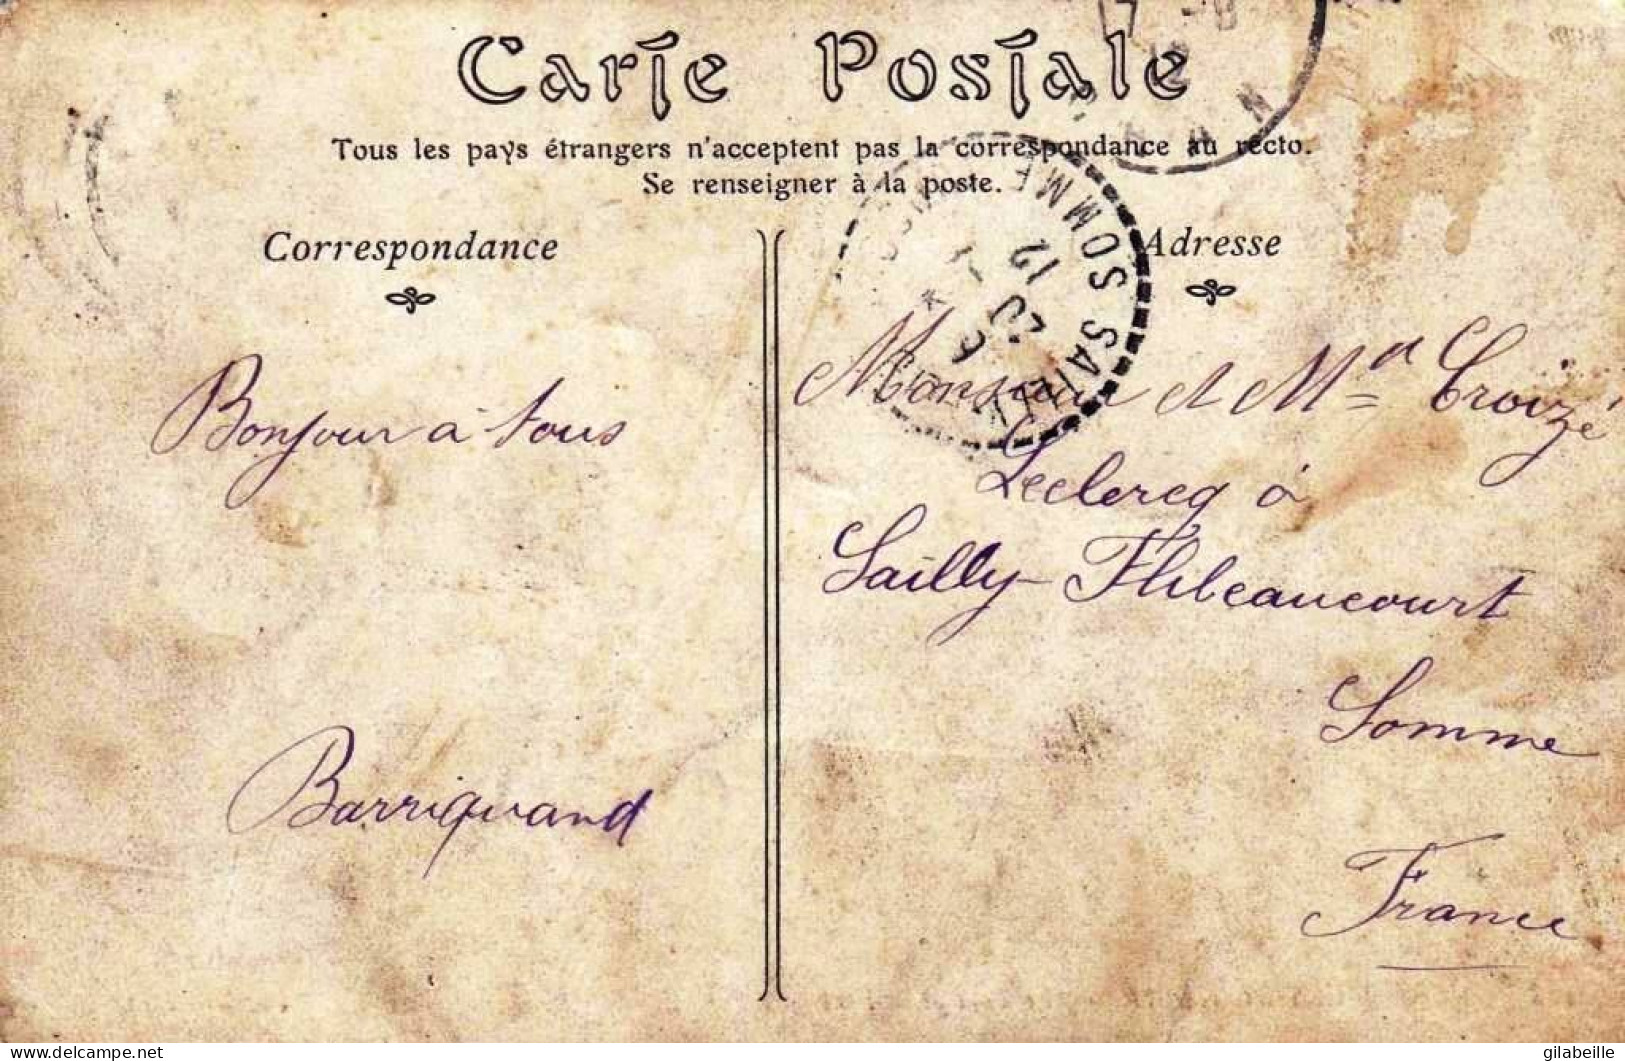 Carte Postale
Tous les pays étrangers n'acceptent pas la correspondance au recto.
Se renseigner à la poste.
Correspondance
Adresse
SOMME
12
20
6
Bonjour à tous
Barriquand
Monsieur et Mᵈ Croizé
Leclercq à
Sailly-Flibeaucourt
Somme
France
www.delcampe.net
gilabeille